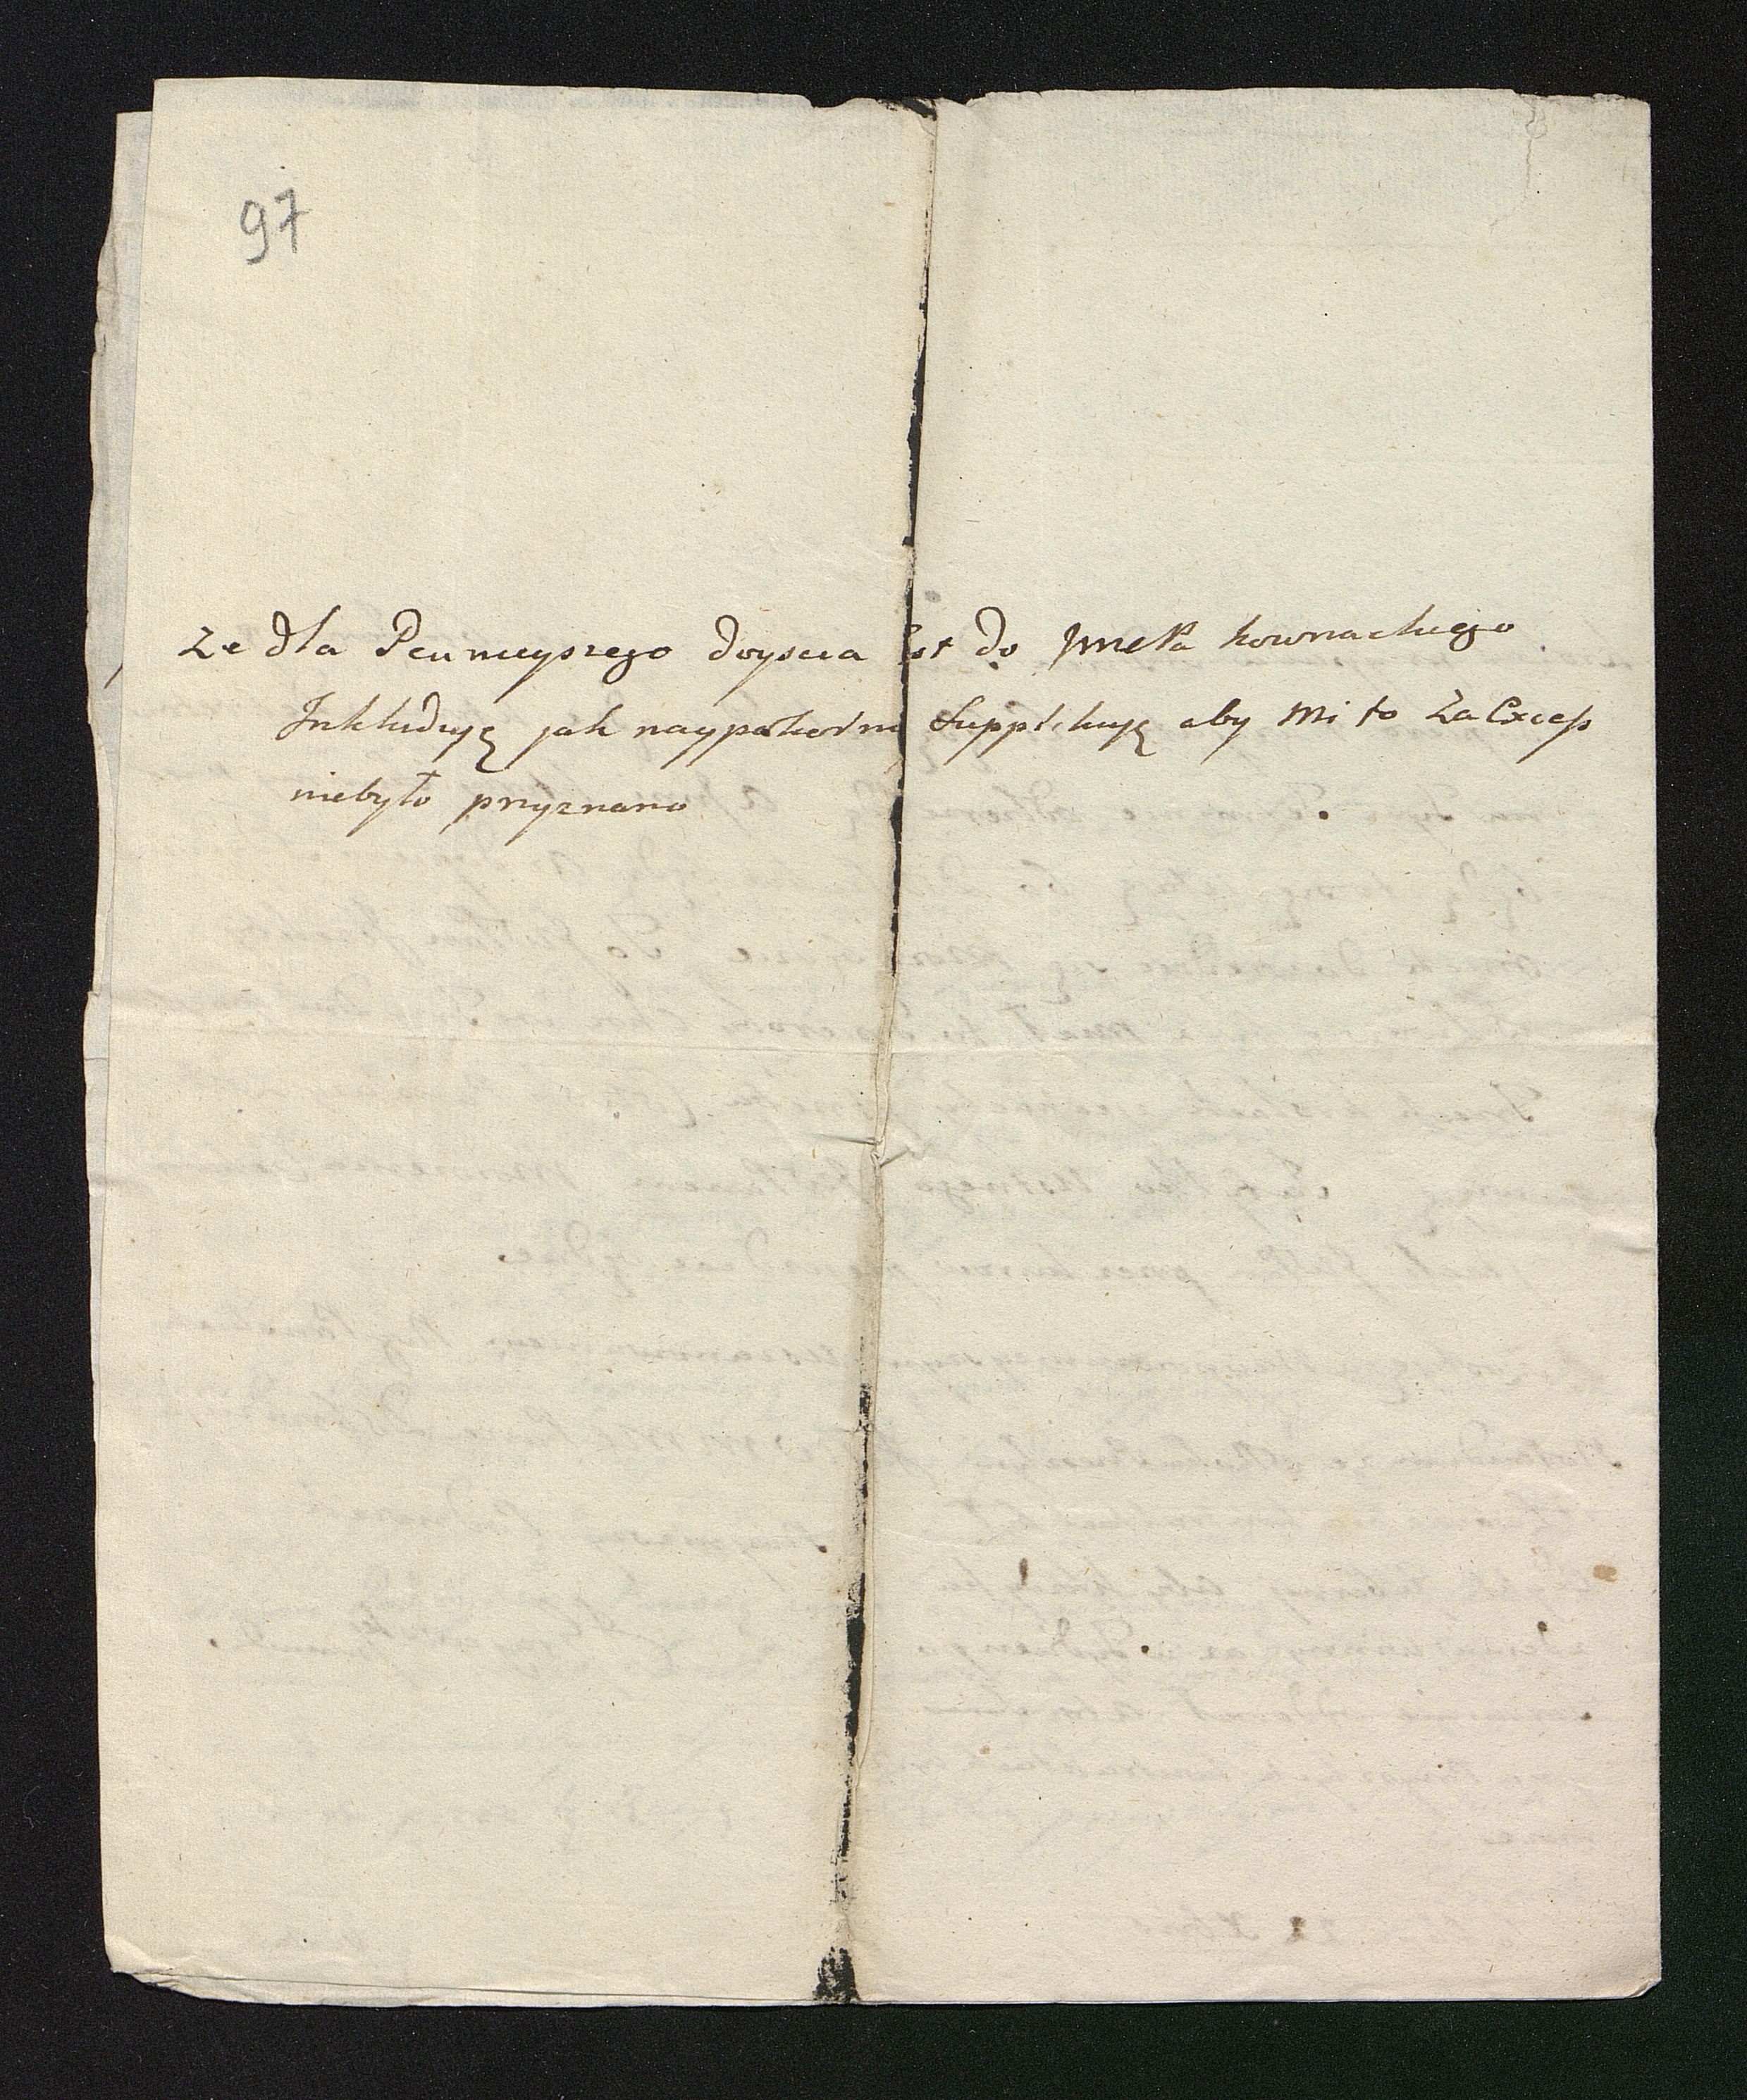 97
Ze dla Pewnieyszego doyscia list do Jmc Pa kownackiego
Inkluduyę jak naypokorni Supplikuyę aby mi to za Excess
niebyło przyznano